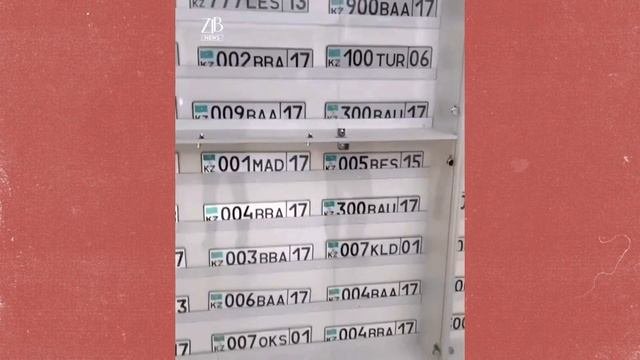 ZTB
NEWS
KZ 777LES 13
KZ 900BAA 17
KZ 002BBA 17
KZ 100TUR 06
KZ 009BAA 17
KZ 300BAU 17
KZ 001MAD 17
KZ 005BES 15
KZ 004BBA 17
KZ 300BAU 17
7
KZ 003BBA 17
KZ 007KLD 01
3
KZ 006BAA 17
KZ 004BAA 17
KZ 007OKS 01
KZ 004BBA 17